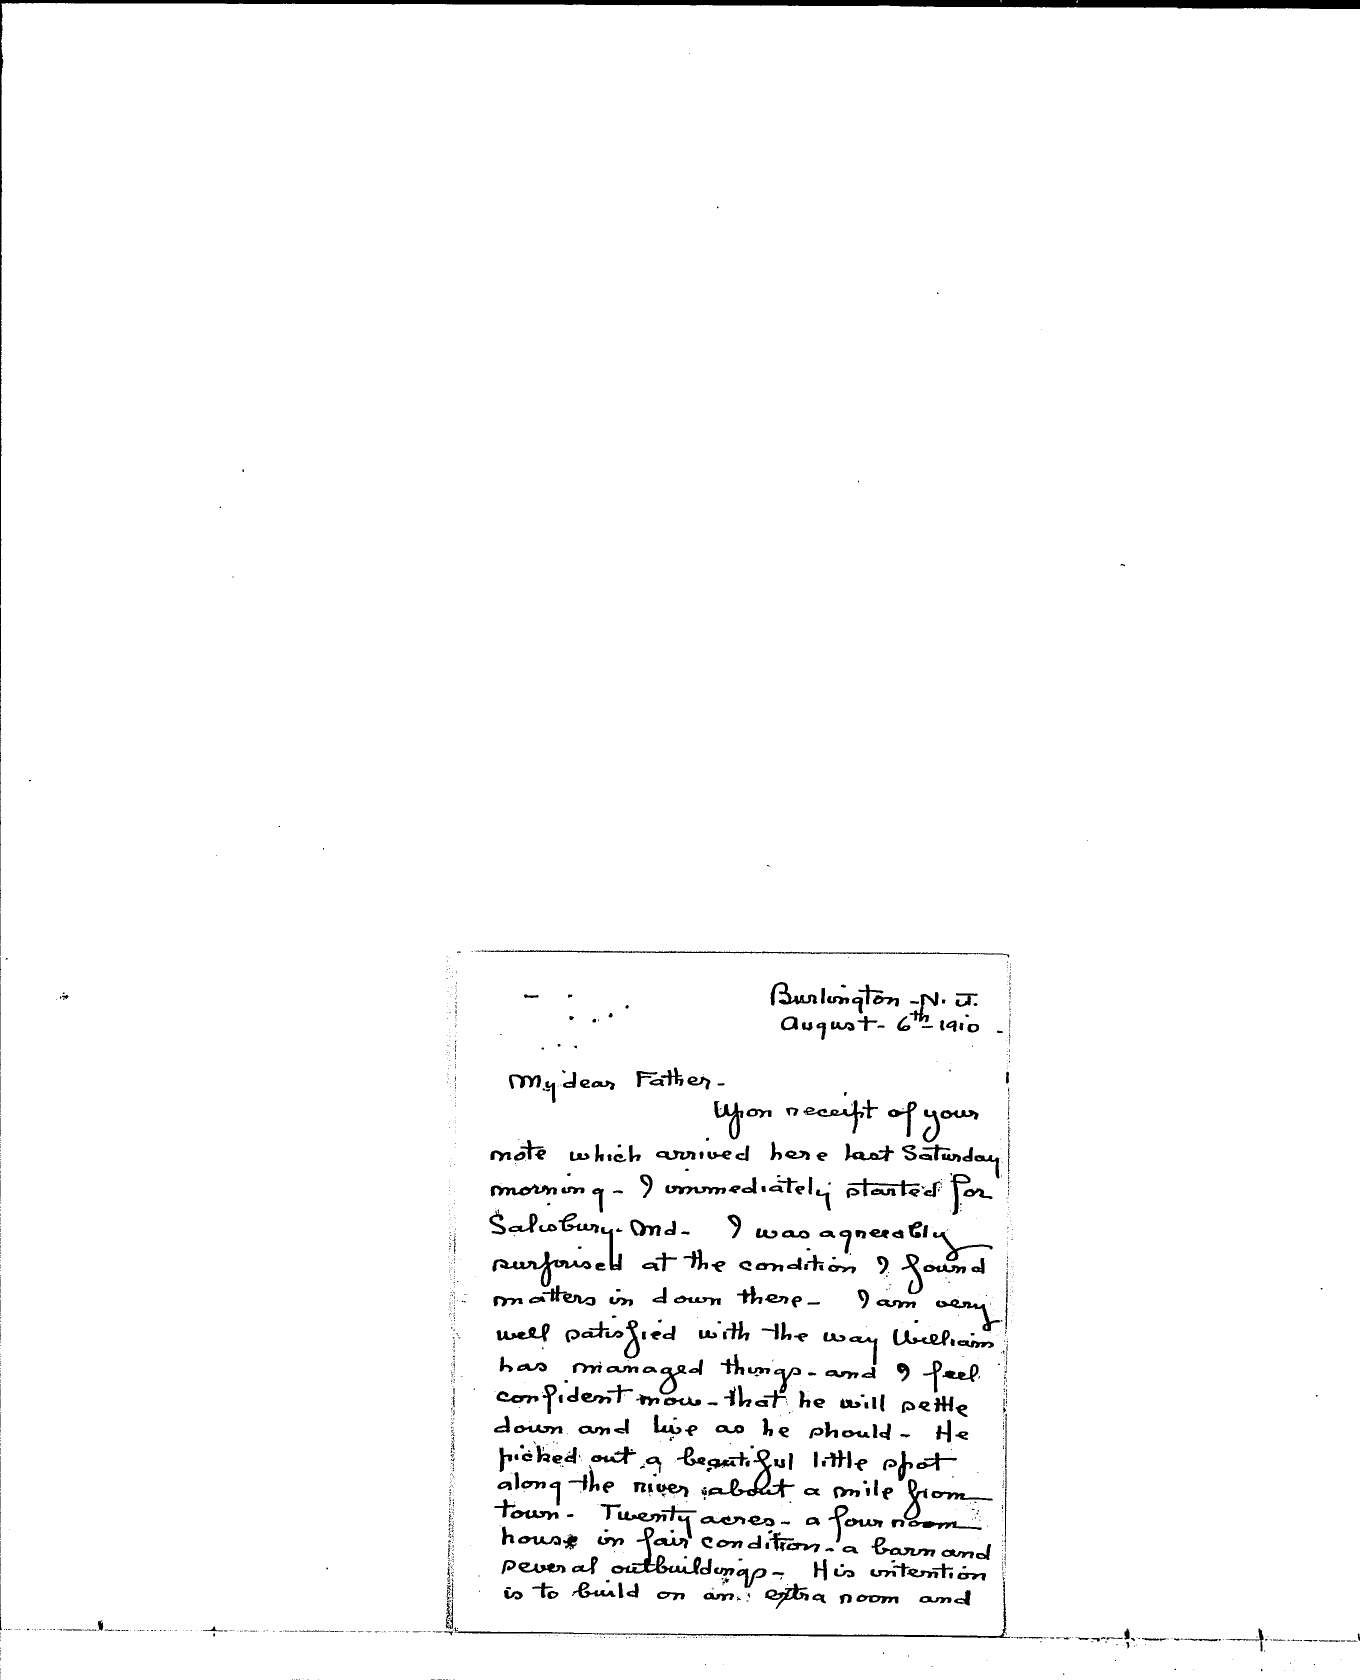 Burlington - N. J.
August - 6th - 1910 -
My dear Father -
Upon receipt of your
note which arrived here last Saturday
morning - I immediately started for
Salisbury - Md - I was agreeably
surprised at the condition I found
matters in down there - I am very
well satisfied with the way William
has managed things - and I feel
confident now - that he will settle
down and live as he should - He
picked out a beautiful little spot
along the river about a mile from
town - Twenty acres - a four room
house in fair condition - a barn and
several outbuildings - His intention
is to build on an extra room and